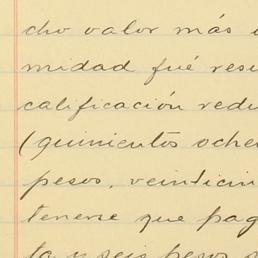 cho valor más
midad fué resu
calificación redu
(quinientos oche
pesos, veinticin
tenerse que pag
ta y seis pesos